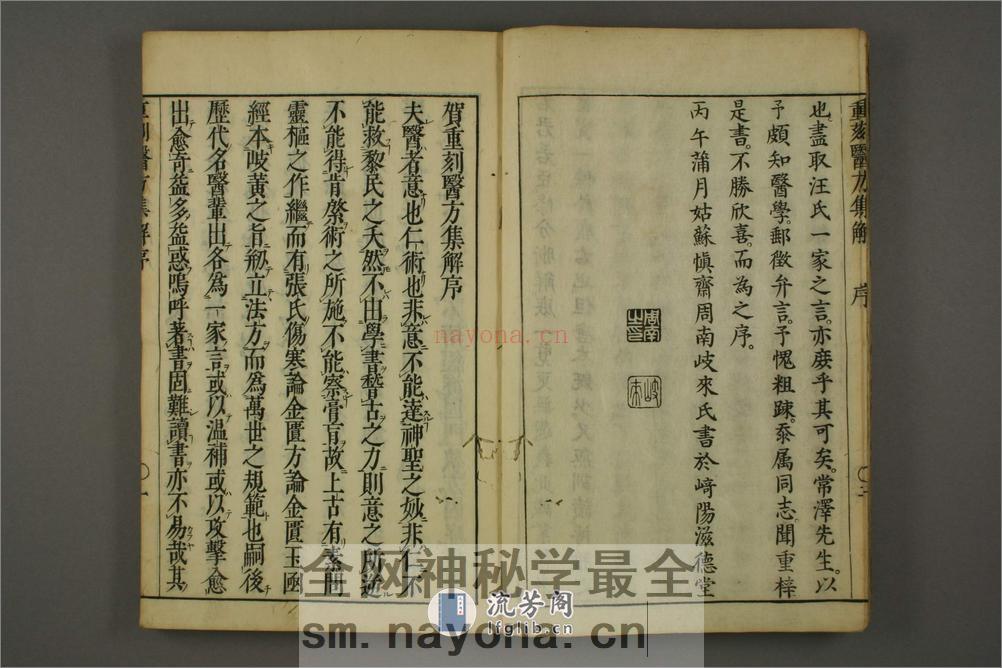 重茲醫方集解 序
也。盡取汪氏一家之言。亦庶乎其可矣。常澤先生。以
予頗知醫學。郵徵弁言。予愧粗踈。忝属同志。聞重梓
是書。不勝欣喜。而為之序。
丙午蒲月姑蘇愼齋周南岐來氏書於﨑陽滋德堂
周南
岐來
賀重刻醫方集解序
夫醫者意也仁術也非意不能達神聖之妙非仁不
能救黎民之夭然不由學書嵆古之力則意之所逆
不能得肯綮術之所施不能察膏肓故上古有素問
靈樞之作繼而有張氏傷寒論金匱方論金匱玉函
經本岐黃之旨刱立法方而爲萬世之規範也嗣後
歷代名醫輩出各爲一家言或以温補或以攻擊愈
出愈奇益多益惑嗚呼著書固難讀書亦不易哉其
重刻醫方集解序 〇一
nayona.cn
全网神秘学最全
流芳阁
lfglib.cn
sm.nayona.cn